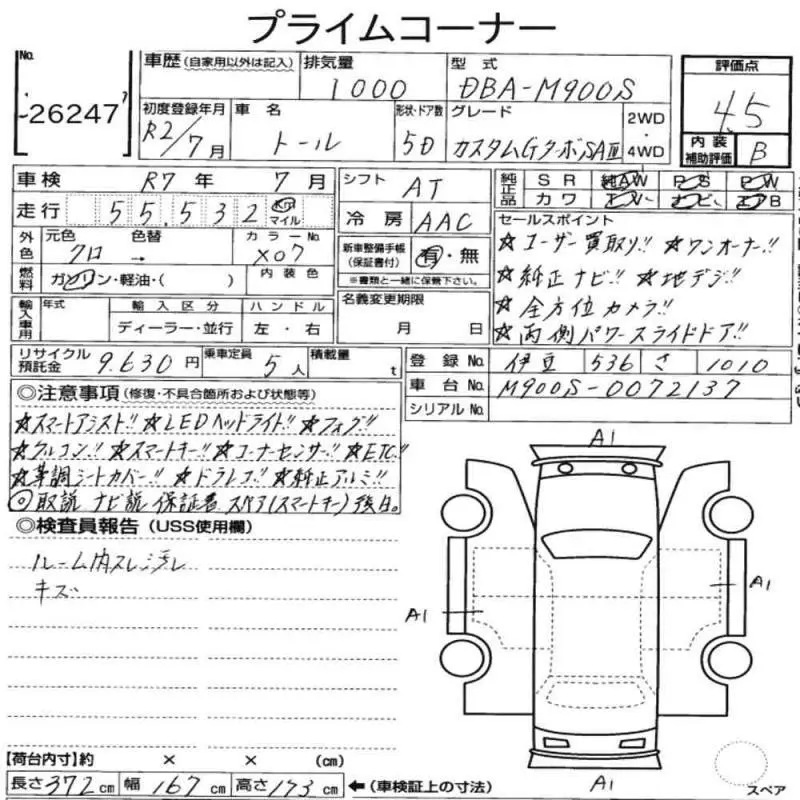 プライムコーナー
No. 26247
車歴 (自家用以外は記入) 排気量 1000 型式 DBA-M900S 評価点 4.5
初度登録年月 R2/7月 車名 トール 形状・ドア数 5D グレード カスタムGターボSAⅢ 2WD・4WD 内装補助評価 B
車検 R7年 7月 シフト AT 純正品 SR 純AW PS PW
カワ エアB
走行 55,532 マイル 冷房 AAC セールスポイント
外色 元色 クロ 色替 → カラーNo. X07 新車整備手帳(保証書付) 有・無 ☆ユーザー買取り!! ☆ワンオーナー!!
燃料 ガソリン・軽油・( ) 内装色 ※書類と一緒に保管下さい。 ☆純正ナビ!! ☆地デジ!!
輸入車用 年式 輸入区分 ハンドル 名義変更期限 ☆全方位カメラ!!
ディーラー・並行 左・右 月 日 ☆両側パワースライドドア!!
リサイクル預託金 9,630円 乗車定員 5人 積載量 t 登録No. 伊豆 536 さ 1010
車台No. M900S-0072137
シリアルNo.
◎注意事項 (修復・不具合箇所および状態等)
☆スマートアシスト!! ☆LEDヘッドライト!! ☆フォグ!!
☆クルコン!! ☆スマートキー!! ☆コーナーセンサー!! ☆ETC!!
☆革調シートカバー!! ☆ドラレコ!! ☆純正アルミ!!
◎取説 ナビ説 保証書 スペア(スマートキー)後日。
◎検査員報告 (USS使用欄)
ルーム内スレ汚レ
キズ
A1
A1
A1
A1
【荷台内寸】約 × × (cm)
長さ372cm 幅167cm 高さ173cm ←(車検証上の寸法)
スペア